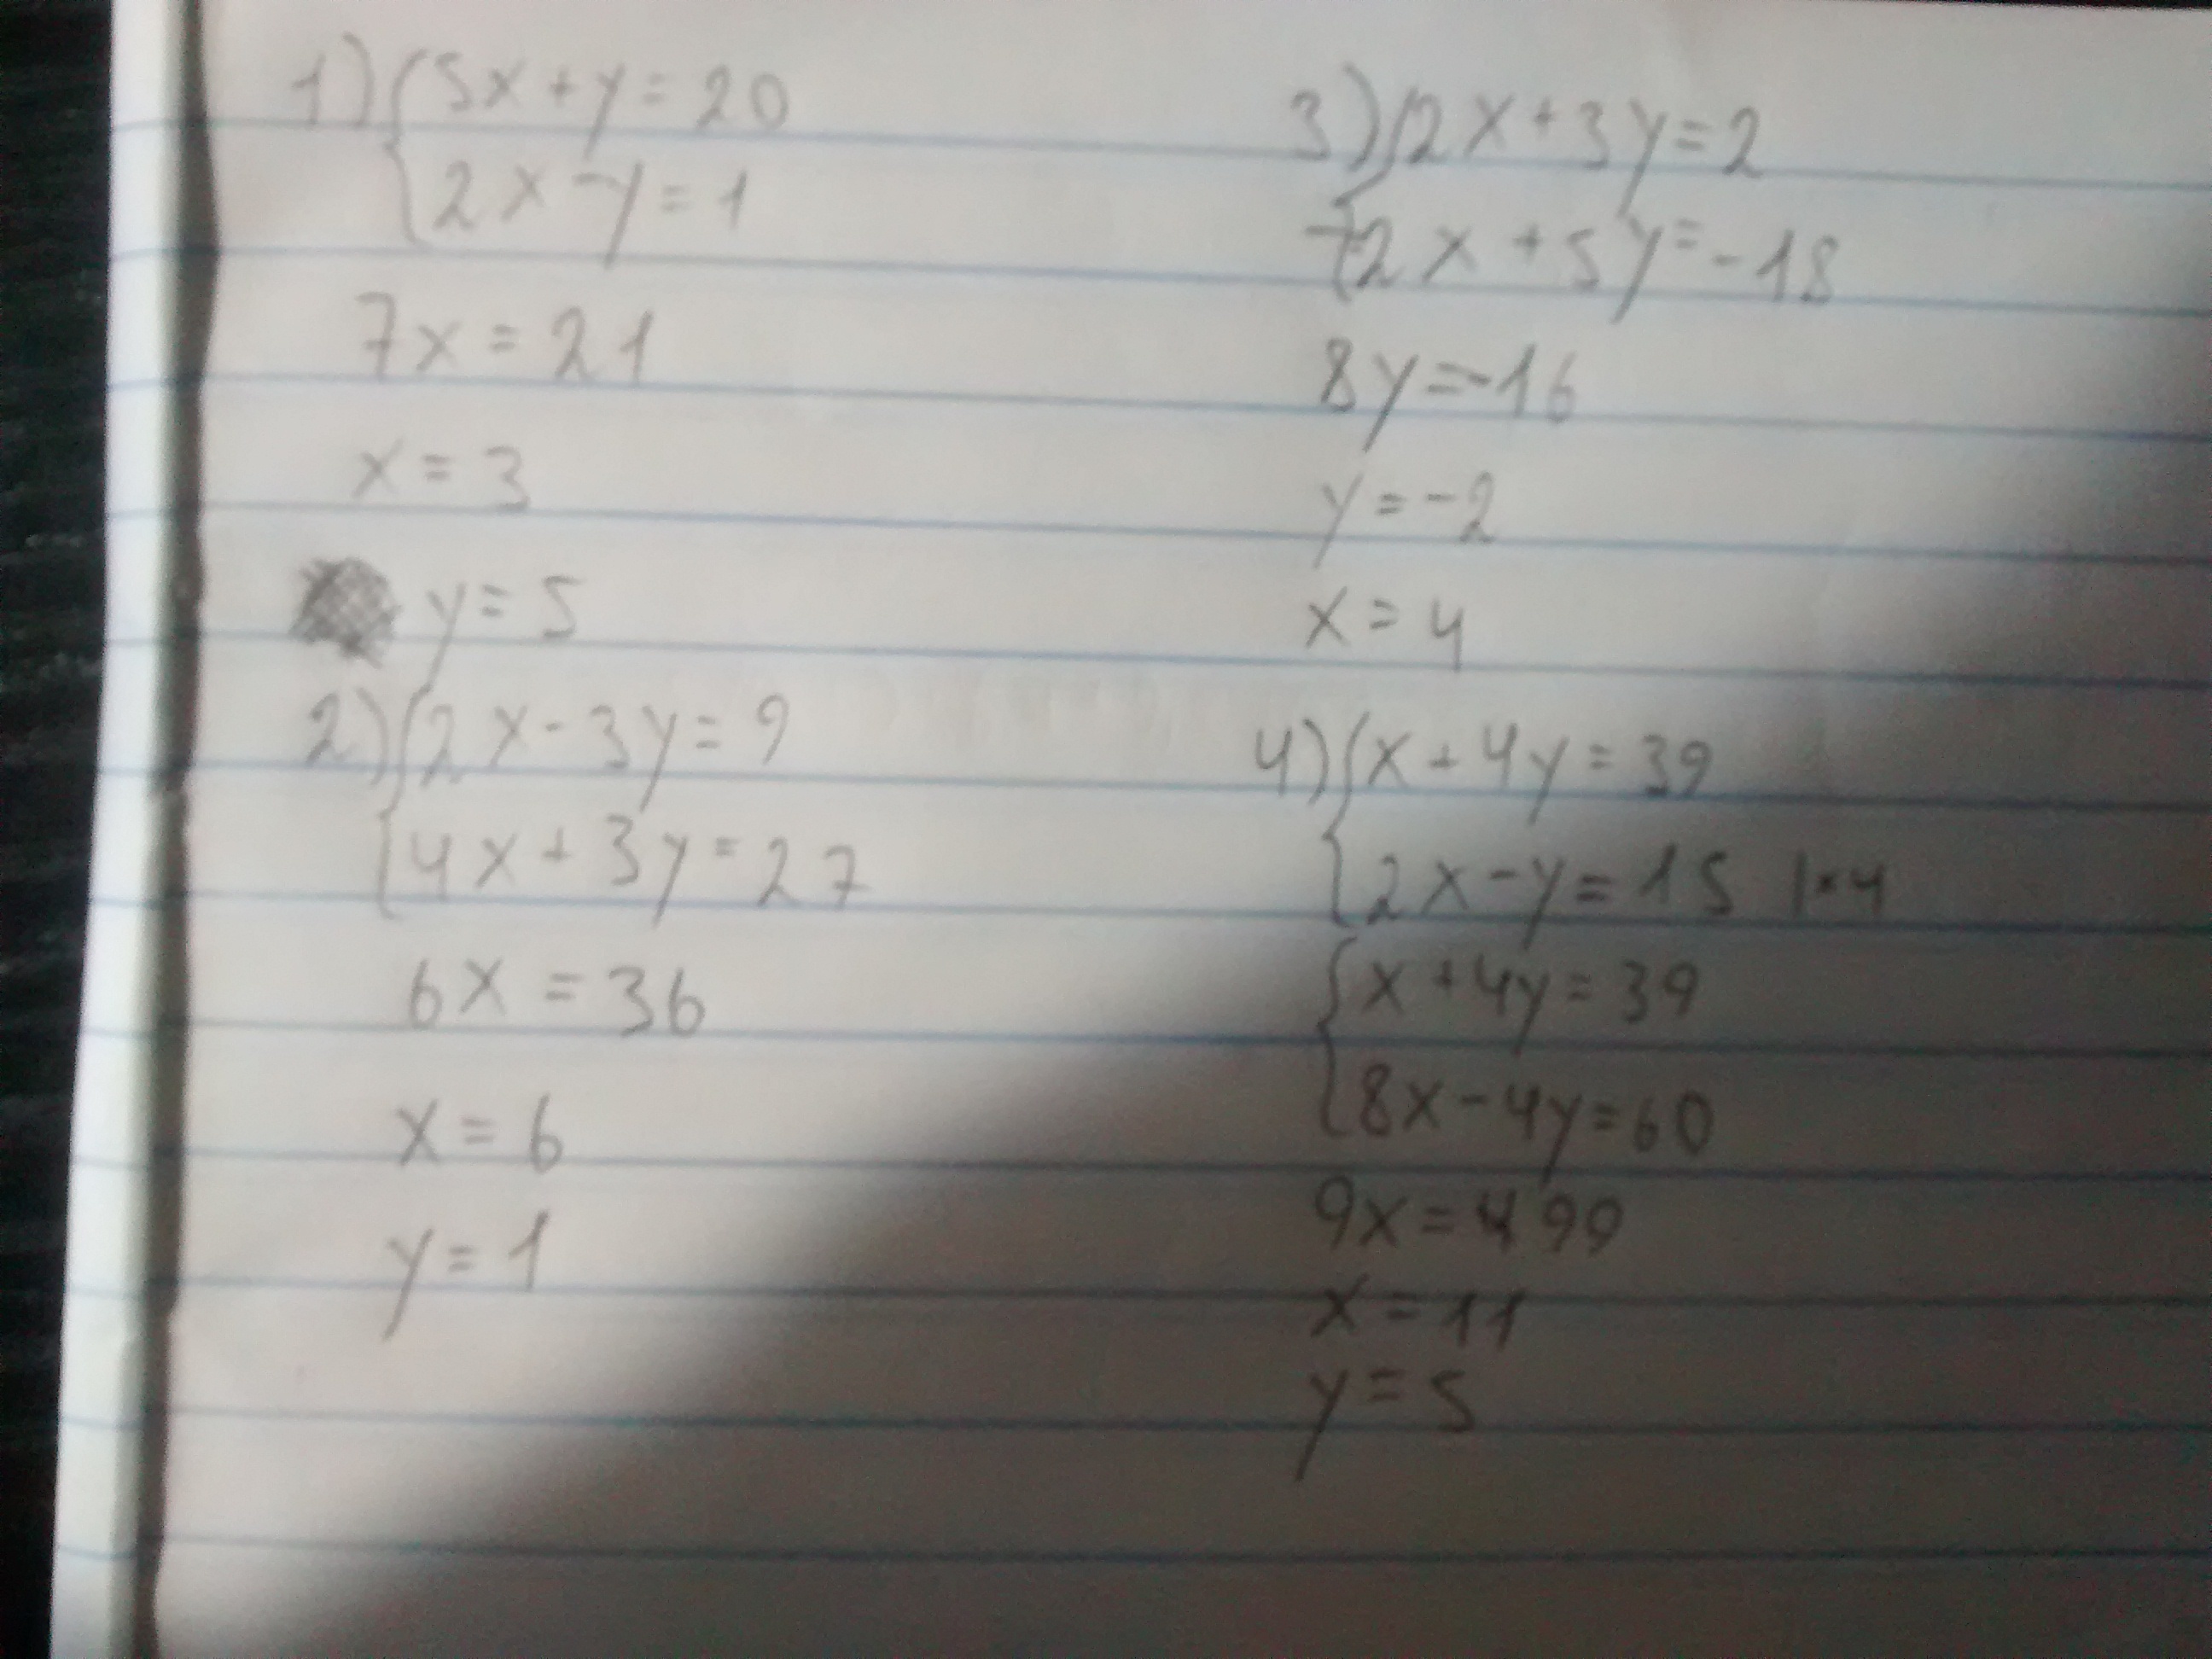 1) { 5x + y = 20
2x - y = 1
7x = 21
x = 3
y = 5
2) { 2x - 3y = 9
4x + 3y = 27
6x = 36
x = 6
y = 1
3) { 2x + 3y = 2
-2x + 5y = -18
8y = -16
y = -2
x = 4
4) { x + 4y = 39
2x - y = 15 | • 4
{ x + 4y = 39
8x - 4y = 60
9x = 99
x = 11
y = 5